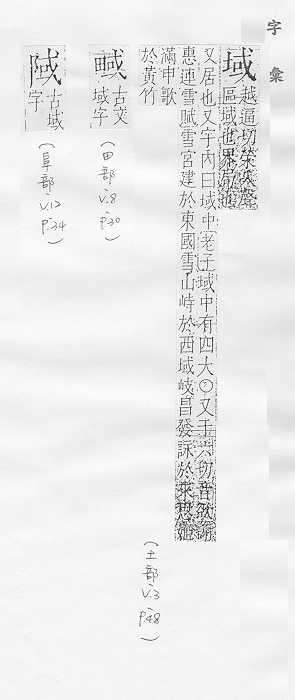 字彙
域越逼切
區域也界局也
又居也又宇內曰域中老子域中有四大○又于六切音欲謝
惠連雪賦雪宮建於東國雪山峙於西域岐昌發詠於來思姬
滿申歌
於黃竹
(土部 v.3 p.48)
䤋古文域字
(田部 v.8 p.30)
古域字
(阜部 v.12 p.34)